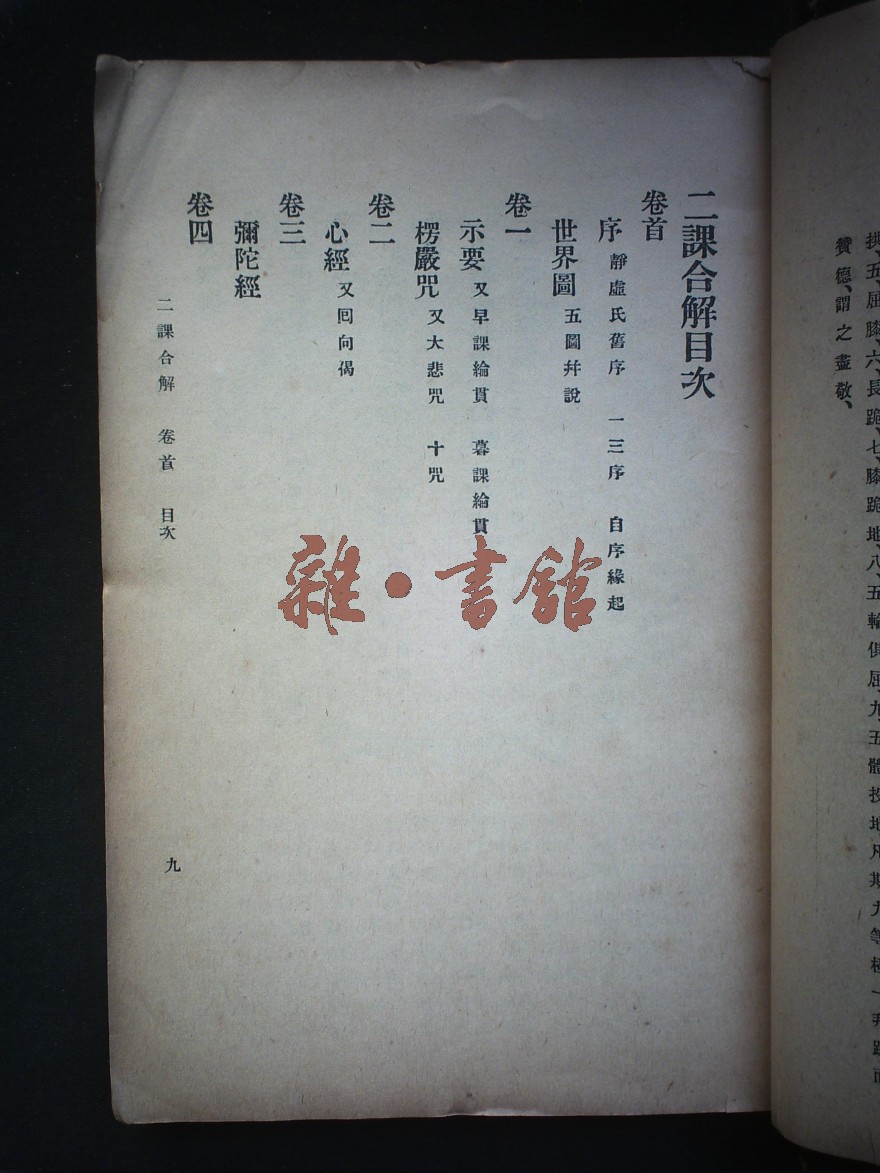 拱、五、屈膝、六、長跪、七、膝跪地、八、五輪俱屈、九、五體投地、凡斯九等極一拜跪而
贊德、謂之盡敬、
二課合解目次
卷首
序 靜虛氏舊序 一三序 自序緣起
世界圖 五圖幷說
卷一
示要 又早課綸貫 暮課綸貫
楞嚴咒 又大悲咒 十咒
卷二
心經 又囘向偈
卷三
彌陀經
卷四
二課合解 卷首 目次
九
雜·書館